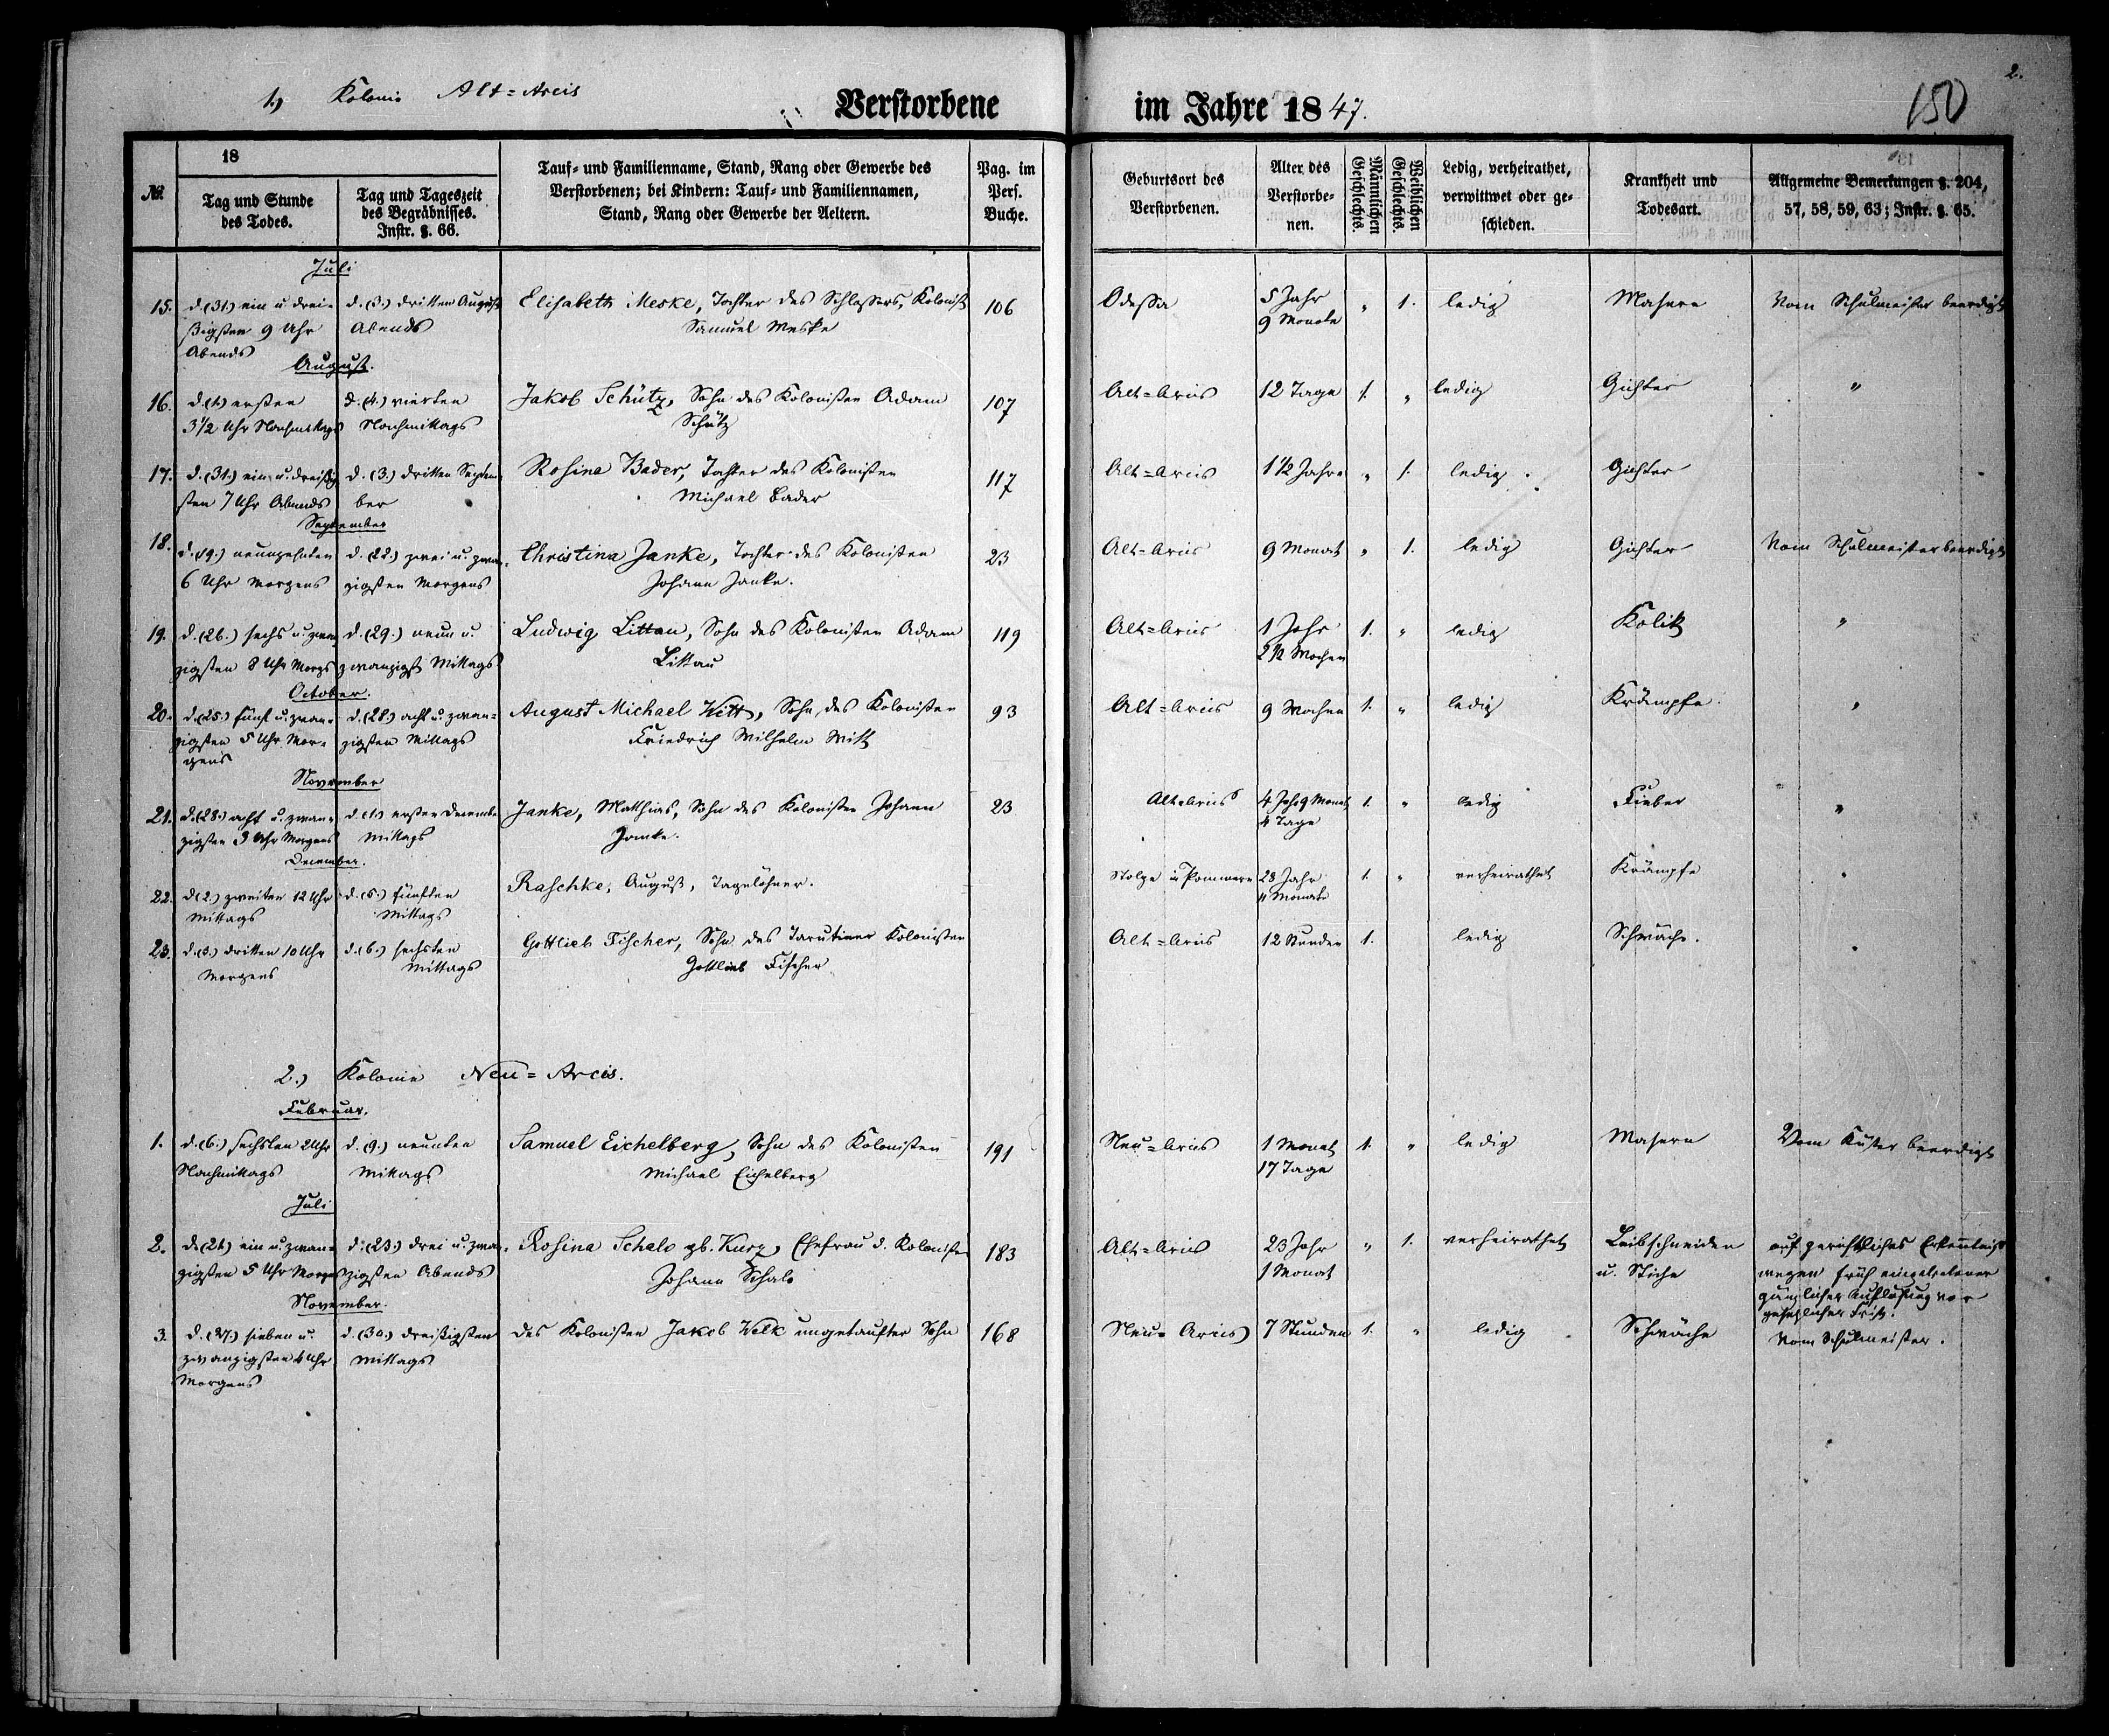 1.) Kolonie Alt=Arcis
Verstorbene im Jahre 1847.
2.
150
№.
18
Tag und Stunde
des Todes.
Tag und Tageszeit
des Begräbnisses.
Instr. §. 66.
Tauf- und Familienname, Stand, Rang oder Gewerbe des
Verstorbenen; bei Kindern: Tauf- und Familiennamen,
Stand, Rang oder Gewerbe der Aeltern.
Pag. im
Pers.
Buche.
Geburtsort des
Verstorbenen.
Alter des
Verstorbe-
nen.
Männlichen
Geschlechts.
Weiblichen
Geschlechts.
Ledig, verheirathet,
verwittwet oder ge-
schieden.
Krankheit und
Todesart.
Allgemeine Bemerkungen §. 204,
57, 58, 59, 63; Instr. §. 65.
Juli
15. d. (31.) ein u drei- d. (3.) dritten August Elisabeth Meske, Tochter des Schlossers, Kolonist 106 Odessa 5 Jahr " 1. ledig Masern Vom Schulmeister beerdigt
ßigsten 9 Uhr Abends Samuel Meske 9 Monate
Abends
August.
16. d. (1.) ersten d. (4.) vierten Jakob Schütz, Sohn des Kolonisten Adam 107 Alt=Arcis 12 Tage 1. " ledig Gichter "
3 1/2 Uhr Nachmittags Nachmittags Schütz
17. d. (31.) ein u. dreißig- d. (3.) dritten Septem- Rosina Bader, Tochter des Kolonisten 117 Alt=Arcis 1 1/2 Jahre " 1. ledig Gichter
sten 7 Uhr Abends ber Michael Bader
September
18. d. (19.) neunzehnten d. (22.) zwei u. zwan- Christina Janke, Tochter des Kolonisten 23 Alt=Arcis 9 Monat " 1. ledig Gichter Vom Schulmeister beerdigt
6 Uhr Morgens zigsten Morgens Johann Janke.
19. d. (26.) sechs u. zwan- d. (29.) neun u. Ludwig Littau, Sohn des Kolonisten Adam 119 Alt=Arcis 1 Jahr 1. " ledig Kolik "
zigsten 8 Uhr Morgs zwanzigst Mittags Littau 2 1/2 Wochen
October.
20. d. (25.) fünf u. zwan- d. (28.) acht u. zwan- August Michael Witt, Sohn des Kolonisten 93 Alt=Arcis 9 Wochen 1. " ledig Krämpfe. "
zigsten 5 Uhr Mor- zigsten Mittags Friedrich Wilhelm Witt
gens
November
21. d. (28.) acht u. zwan- d. (1.) ersten Decembr Janke, Matthias, Sohn des Kolonisten Johann 23 Alt=Arcis 4 Jahr 9 Monat 1. " ledig Fieber "
zigsten 3 Uhr Morgens Mittags Janke. 4 Tage
December.
22. d. (2.) zweiten 12 Uhr d. (5.) fünften Raschke, August, Tagelöhner. Stolpe in Pommern 28 Jahr 1. " verheirathet Krämpfe "
Mittags Mittags 11 Monate
23. d. (3.) dritten 10 Uhr d. (6.) sechsten Gottlieb Fischer, Sohn des Tarutiner Kolonisten Alt=Arcis 12 Stunden 1. ledig Schwäche. "
Morgens Mittags Gottlieb Fischer
2.) Kolonie Neu=Arcis.
Februar.
1. d. (6.) sechsten 2 Uhr d. (9.) neunten Samuel Eichelberg, Sohn des Kolonisten 191 Neu=Arcis 1 Monat 1. " ledig Masern Vom Küster beerdigt
Nachmittags Mittags Michael Eichelberg 17 Tage
Juli
2. d. (21.) ein u. zwan- d. (23.) drei u. zwan- Rosina Schalo gb. Kurz, Ehefrau d. Kolonisten 183 Alt=Arcis 23 Jahr " 1. verheirathet Leibschneiden auf gerichtliches Erkenntniß
zigsten 5 Uhr Morgens zigsten Abends Johann Schalo 1 Monat u. Stiche wegen früh eingetretener
gänzlicher Auflösung vor
gesetzlicher Frist.
November.
3. d. (27.) sieben u. d. (30.) dreißigsten des Kolonisten Jakob Welk ungetaufter Sohn 168 Neu=Arcis 7 Stunden 1. " ledig Schwäche Vom Schulmeister.
zwanzigsten 4 Uhr Mittags
Morgens